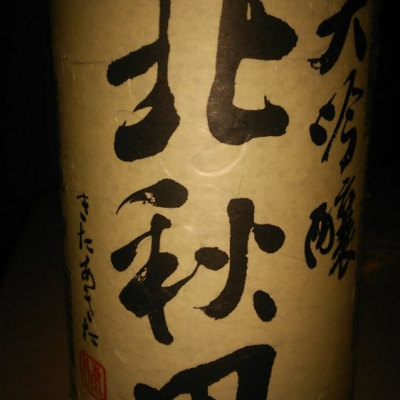 大吟醸
北秋田
きたあきた